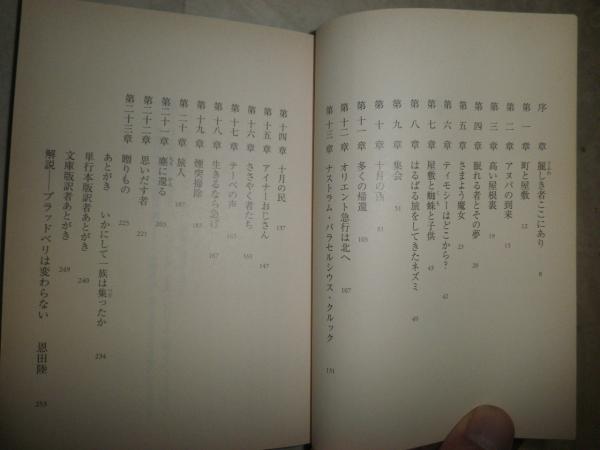 序　章　麗しき者ここにあり　8
第 一 章　町と屋敷　12
第 二 章　アヌバの到来　15
第 三 章　高い屋根裏　19
第 四 章　眠れる者とその夢　20
第 五 章　さまよう魔女　23
第 六 章　ティモシーはどこから？　42
第 七 章　屋敷と蜘蛛と子供　45
第 八 章　はるばる旅をしてきたネズミ　49
第 九 章　集会　51
第 十 章　十月の西　83
第十一章　多くの帰還　105
第十二章　オリエント急行は北へ　107
第十三章　ナストラム・パラセルシウス・クルック　131
第十四章　十月の民　137
第十五章　アイナーおじさん　147
第十六章　ささやく者たち　161
第十七章　テーベの声　165
第十八章　生きるなら急げ　167
第十九章　煙突掃除　183
第二十章　旅人　187
第二十一章　塵に還る　203
第二十二章　思いだす者　221
第二十三章　贈りもの　225
あとがき　いかにして一族は集ったか　234
単行本版訳者あとがき　240
文庫版訳者あとがき　249
解説――ブラッドベリは変わらない　恩田陸　253